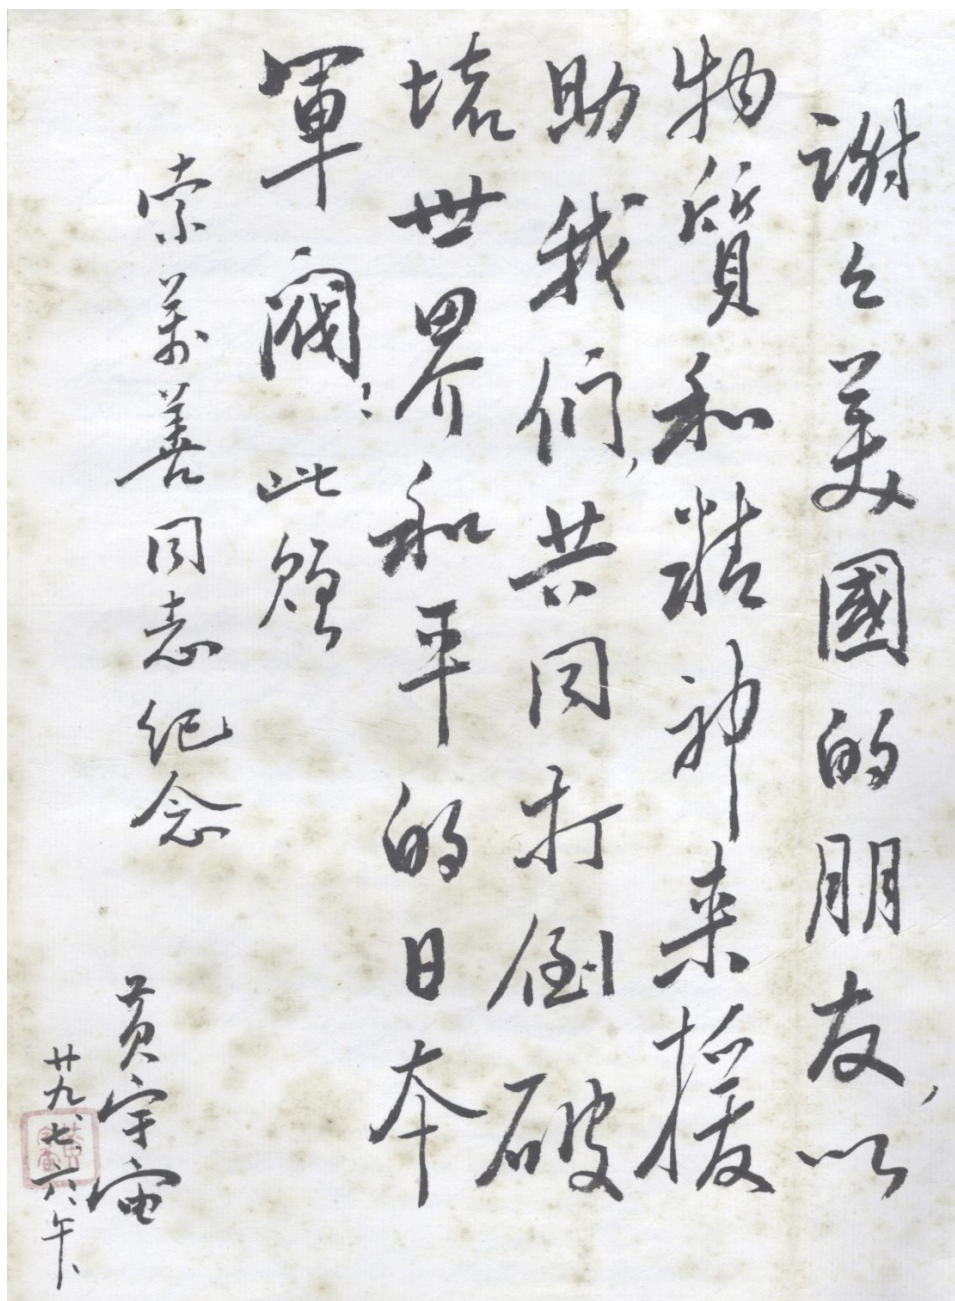 謝々美國的朋友，以
物質和精神来援
助我們，共同打倒破
壞世界和平的日本
軍閥！此贈
索萬善同志紀念
黄宇宙
廿九、七、六、午、